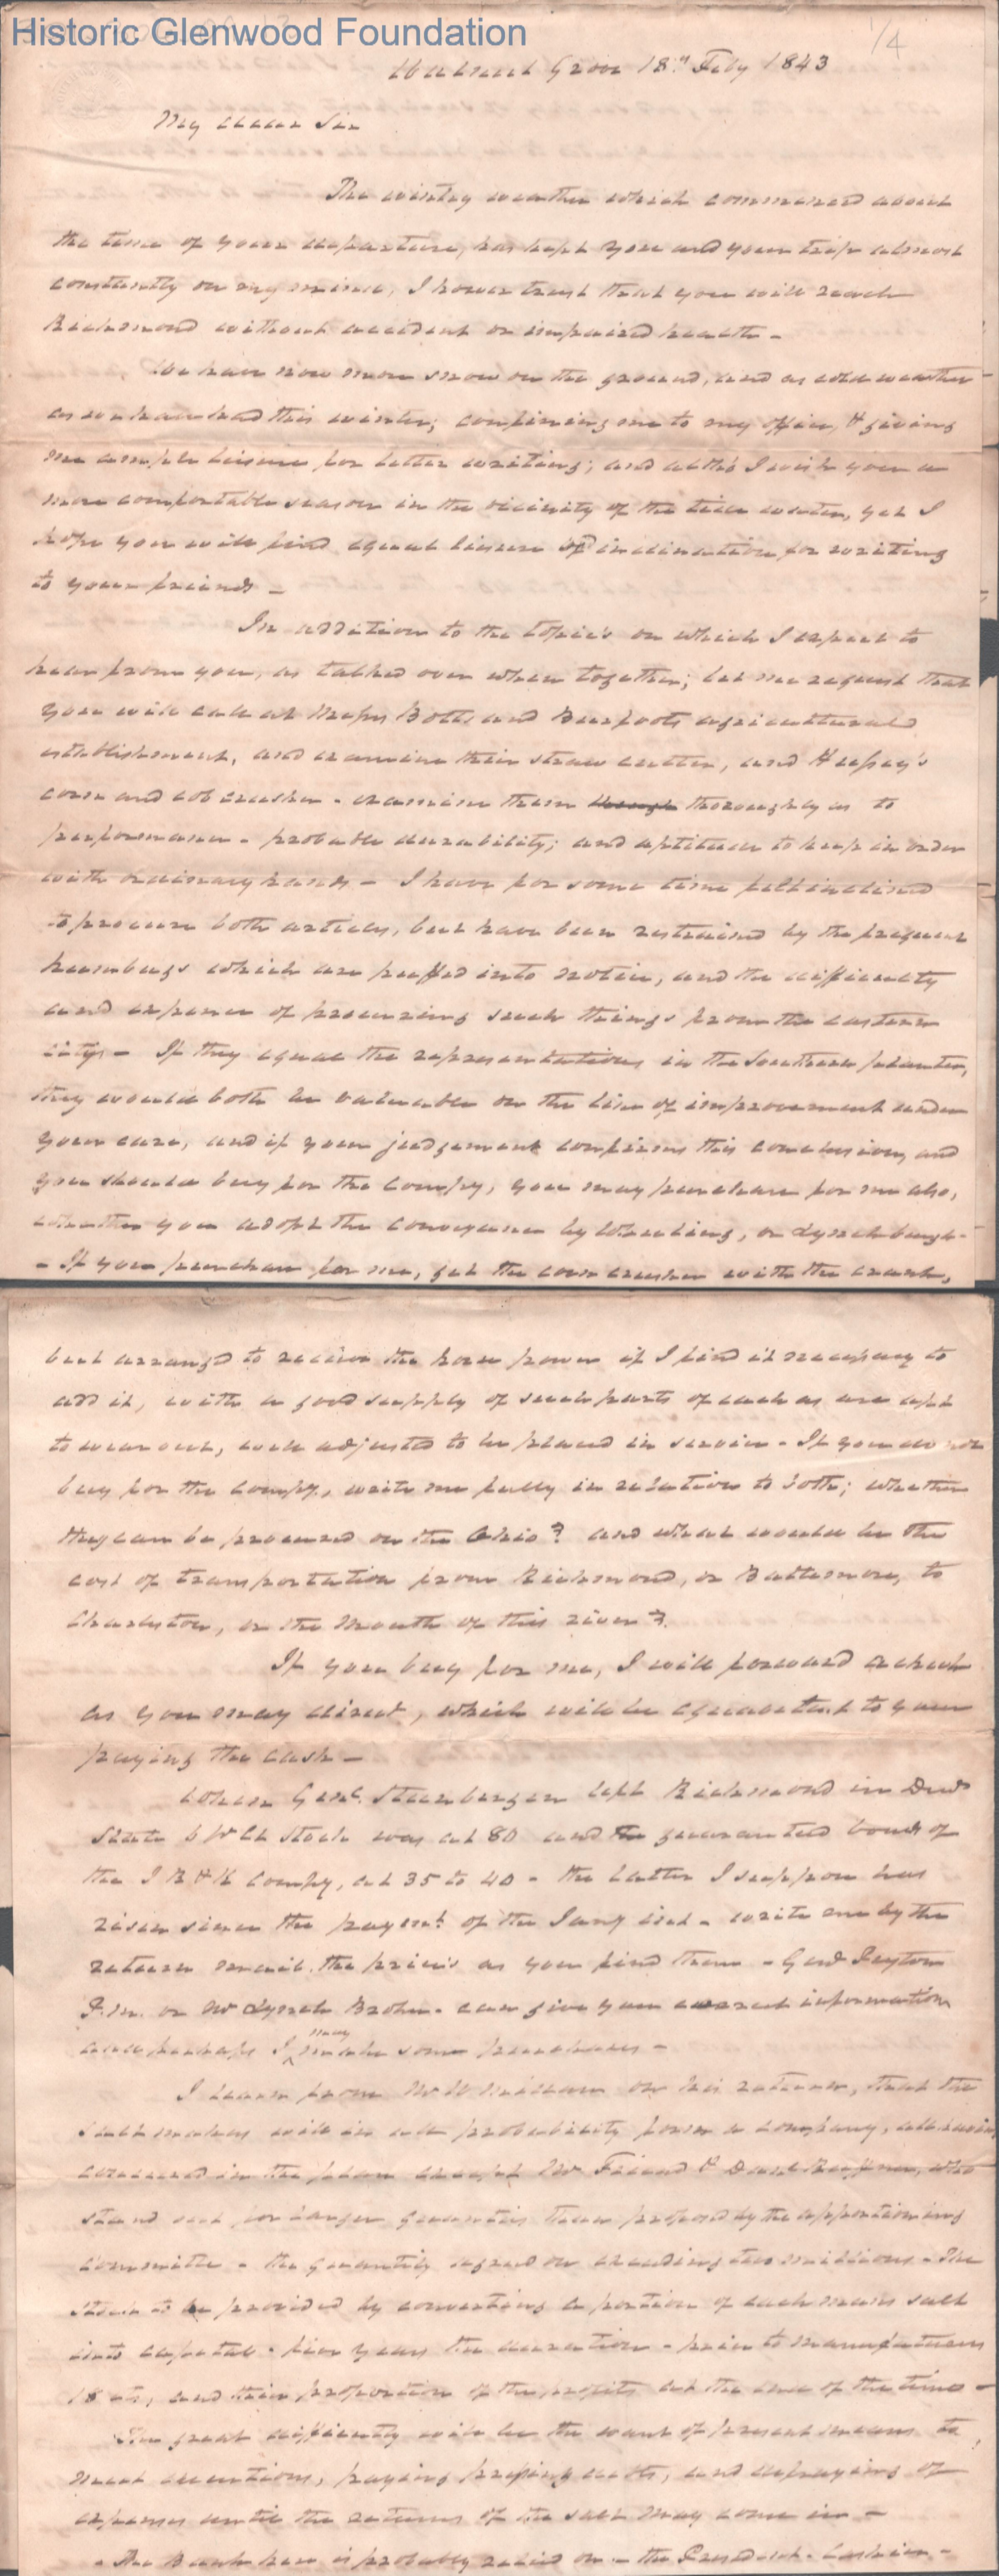 Historic Glenwood Foundation
1/4
Walnut Grove 18th Feby 1843
My dear Sir
The wintry weather which commenced about
the time of your departure, has kept you and your trip almost
constantly on my mind, I however trust that you will reach
Richmond without accident or impaired health -
We have now more snow on the ground, and as cold weather
as we have had this winter; confining me to my office, & giving
me ample leisure for letter writing; and altho I wish you a
more comfortable season in the vicinity of the tide water, yet I
hope you will find equal leisure & inclination for writing
to your friends -
In addition to the topics on which I expect to
hear from you, as talked over when together; let me request that
you will call at Messrs Botts and Burfoots agricultural
establishment, and examine their straw cutter, and Hussey's
corn and cob crusher - examine them thoroughly as to
performance - probable durability; and aptitude to keep in order
with ordinary hands - I have for some time felt inclined
to procure both articles, but have been restrained by the frequent
humbugs which are puffed into notice, and the difficulty
and expense of procuring such things from the eastern
citys - If they equal the representations in the Southern planter,
they would both be valuable on the line of improvement under
your care, and if your judgement confirms this conclusion, and
you should buy for the Compy, you may purchase for me also,
whether you adopt the conveyance by Wheeling, or Lynchburg -
- If you purchase for me, get the corn crusher with the crank,
but arranged to receive the horse power if I find it necessary to
add it, with a good supply of such parts of each as are apt
to wear out, well adjusted to be placed in service - If you do not
buy for the Compy, write me fully in relation to both; whether
they can be procured on the Ohio? and what would be the
cost of transportation from Richmond, or Baltimore, to
Charleston, or the Mouth of this river?
If you buy for me, I will forward a check
as you may direct, which will be equivalent to your
paying the cash -
When Genl. Steenbergen left Richmond in Decr
State 6 pr Ct Stock was at 80 and guaranteed bonds of
the J R & K Compy, at 35 to 40 - the latter I suppose has
risen since the paymt of the Jany int - write me by the
return mail the prices as you find them - Genl Peyton
P.M. or Mr Lynch Broker - can give you correct information
and perhaps I may make some purchases -
I learn from on his return, that the
Salt makers will in all probability form a company, all having
concurred in the plan except Mr Friend & Danl Ruffner, who
stand out for larger quantities than proposed by the apportioning
committee - the quantity agreed on exceeding two millions - The
Stock to be provided by converting a portion of each mans salt
into capital - five years the duration - price to manufacturers
18 cts, and their proportion of the profits at the end of the time -
The great difficulty will be the want of present means to
meet executions, paying pressing debts, and defraying of
expenses until the returns of the salt may come in -
- The Bank here is probably relied on - the President - Cashier -